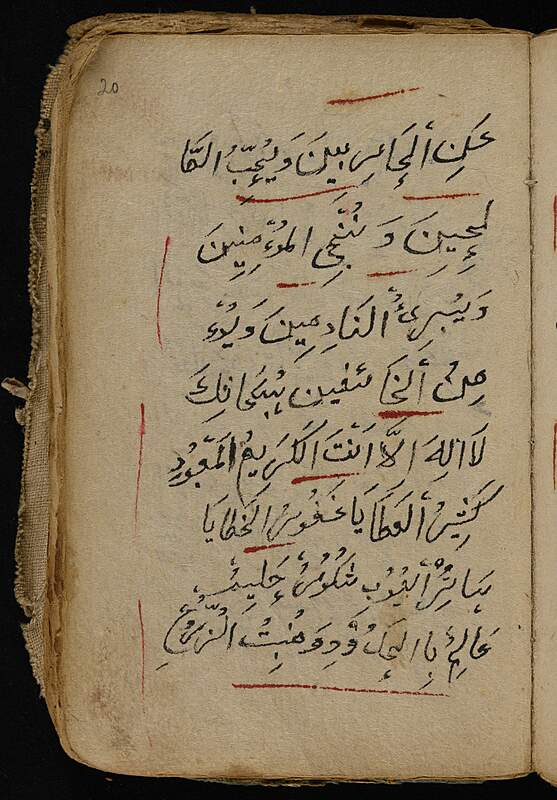 20
عَكِنِ الْحَاسِرِبِينَ وَيُحِبُّ الصَّا
لِحِينَ وَ نُنْجِي المُؤْمِنِينَ
وَيُبْرِئُ النَادِمِينَ وَيُؤْ
مِنُ الخَائفِينَ سُبْحَانَكَ
لَا الِهَ الَّا اَنْتَ الْكَرِيمُ الْمَعْبُودِ
كَثِيرُ الْعَطَايَا غَفُورُ الْخَطَايَا
سَاتِرُ الْعُيُوبِ شَكُورٌ حَلِيمٌ
عَالِمٌ بِالْحِكُودِ وَمُنْبِتُ الزَّرْعِ